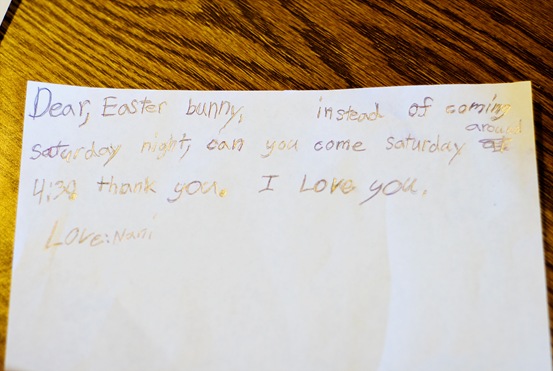 Dear, Easter bunny, instead of coming
saturday night, can you come saturday around
4:30 thank you. I Love you.
Love: Nani